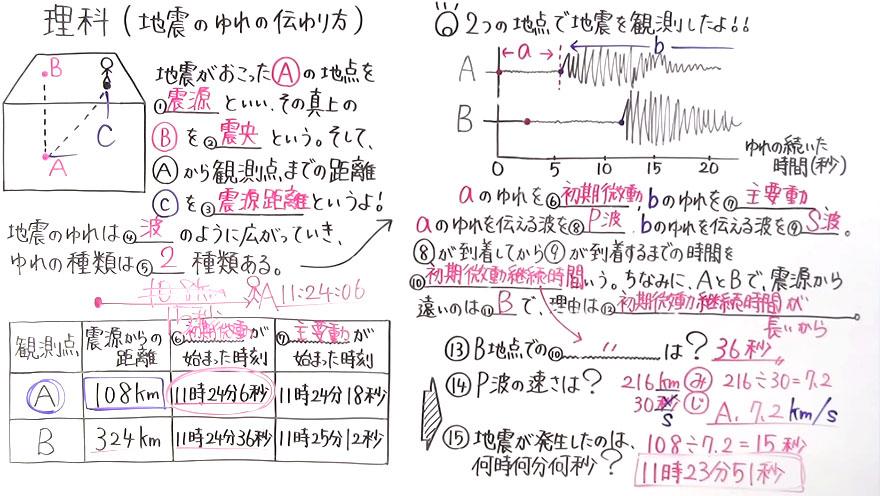 理科(地震のゆれの伝わり方)
B
A
C
地震がおこったⒶの地点を
①震源といい、その真上の
Ⓑを②震央という。そして、
Ⓐから観測点までの距離
Ⓒを③震源距離というよ!
地震のゆれは④波のように広がっていき、
ゆれの種類は⑤2種類ある。
108km
A 11:24:06
観測点 震源からの距離 ⑥初期微動が始まった時刻 ⑦主要動が始まった時刻
A 108km 11時24分6秒 11時24分18秒
B 324km 11時24分36秒 11時25分12秒
2つの地点で地震を観測したよ!!
a b
A
B
0 5 10 15 20
ゆれの続いた
時間(秒)
aのゆれを⑥初期微動 bのゆれを⑦主要動
aのゆれを伝える波を⑧P波、bのゆれを伝える波を⑨S波。
⑧が到着してから⑨が到着するまでの時間を
⑩初期微動継続時間いう。ちなみに、AとBで、震源から
遠いのは⑪Bで、理由は⑫初期微動継続時間が
長いから
⑬B地点での⑩〃は? 36秒〃
⑭P波の速さは? 216km み 216÷30=7.2
30秒 じ A. 7.2km/s
s
⑮地震が発生したのは、 108÷7.2=15秒
何時何分何秒? 11時23分51秒